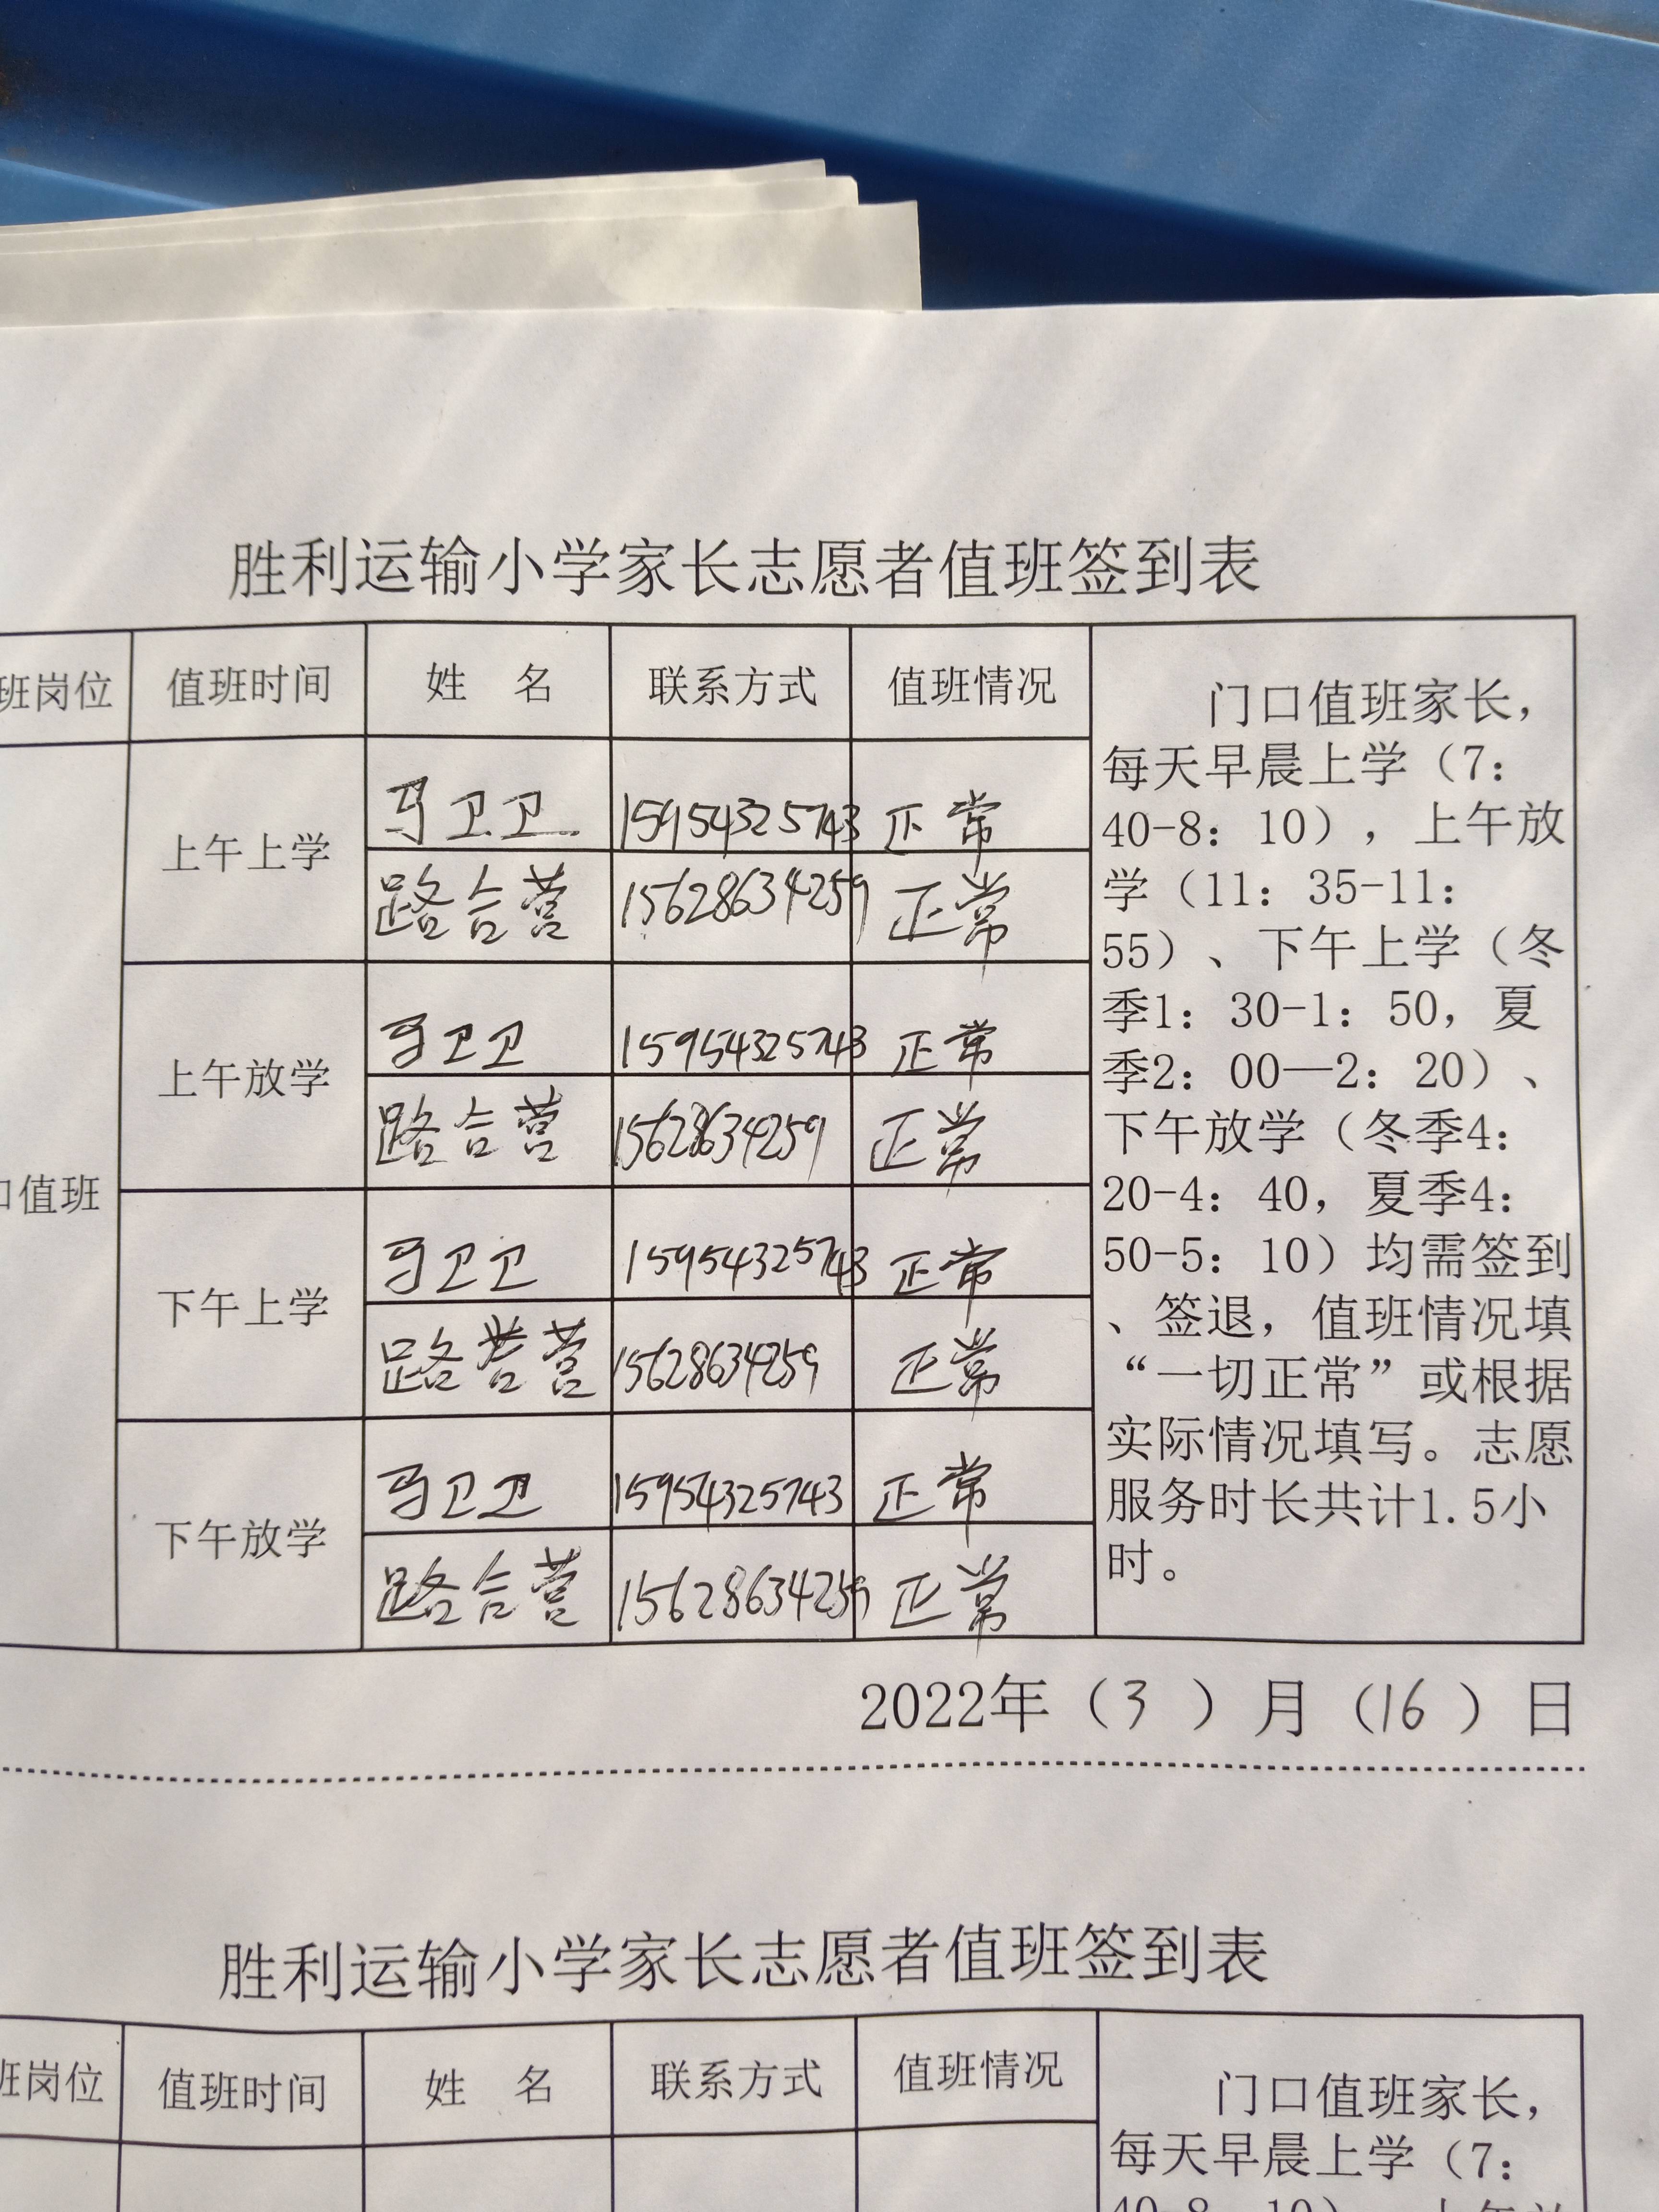 胜利运输小学家长志愿者值班签到表
班岗位 值班时间 姓 名 联系方式 值班情况
门口值班家长，
每天早晨上学（7：
40-8：10），上午放
学（11：35-11：
55）、下午上学（冬
季1：30-1：50，夏
季2：00—2：20）、
下午放学（冬季4：
20-4：40，夏季4：
50-5：10）均需签到
、签退，值班情况填
“一切正常”或根据
实际情况填写。志愿
服务时长共计1.5小
时。
口值班
上午上学
马卫卫 15954325743 正常
路合营 15628634259 正常
上午放学
马卫卫 15954325743 正常
路合营 15628634259 正常
下午上学
马卫卫 15954325743 正常
路营 15628634259 正常
下午放学
马卫卫 15954325743 正常
路合营 15628634259 正常
2022年（3）月（16）日
胜利运输小学家长志愿者值班签到表
班岗位 值班时间 姓 名 联系方式 值班情况
门口值班家长，
每天早晨上学（7：